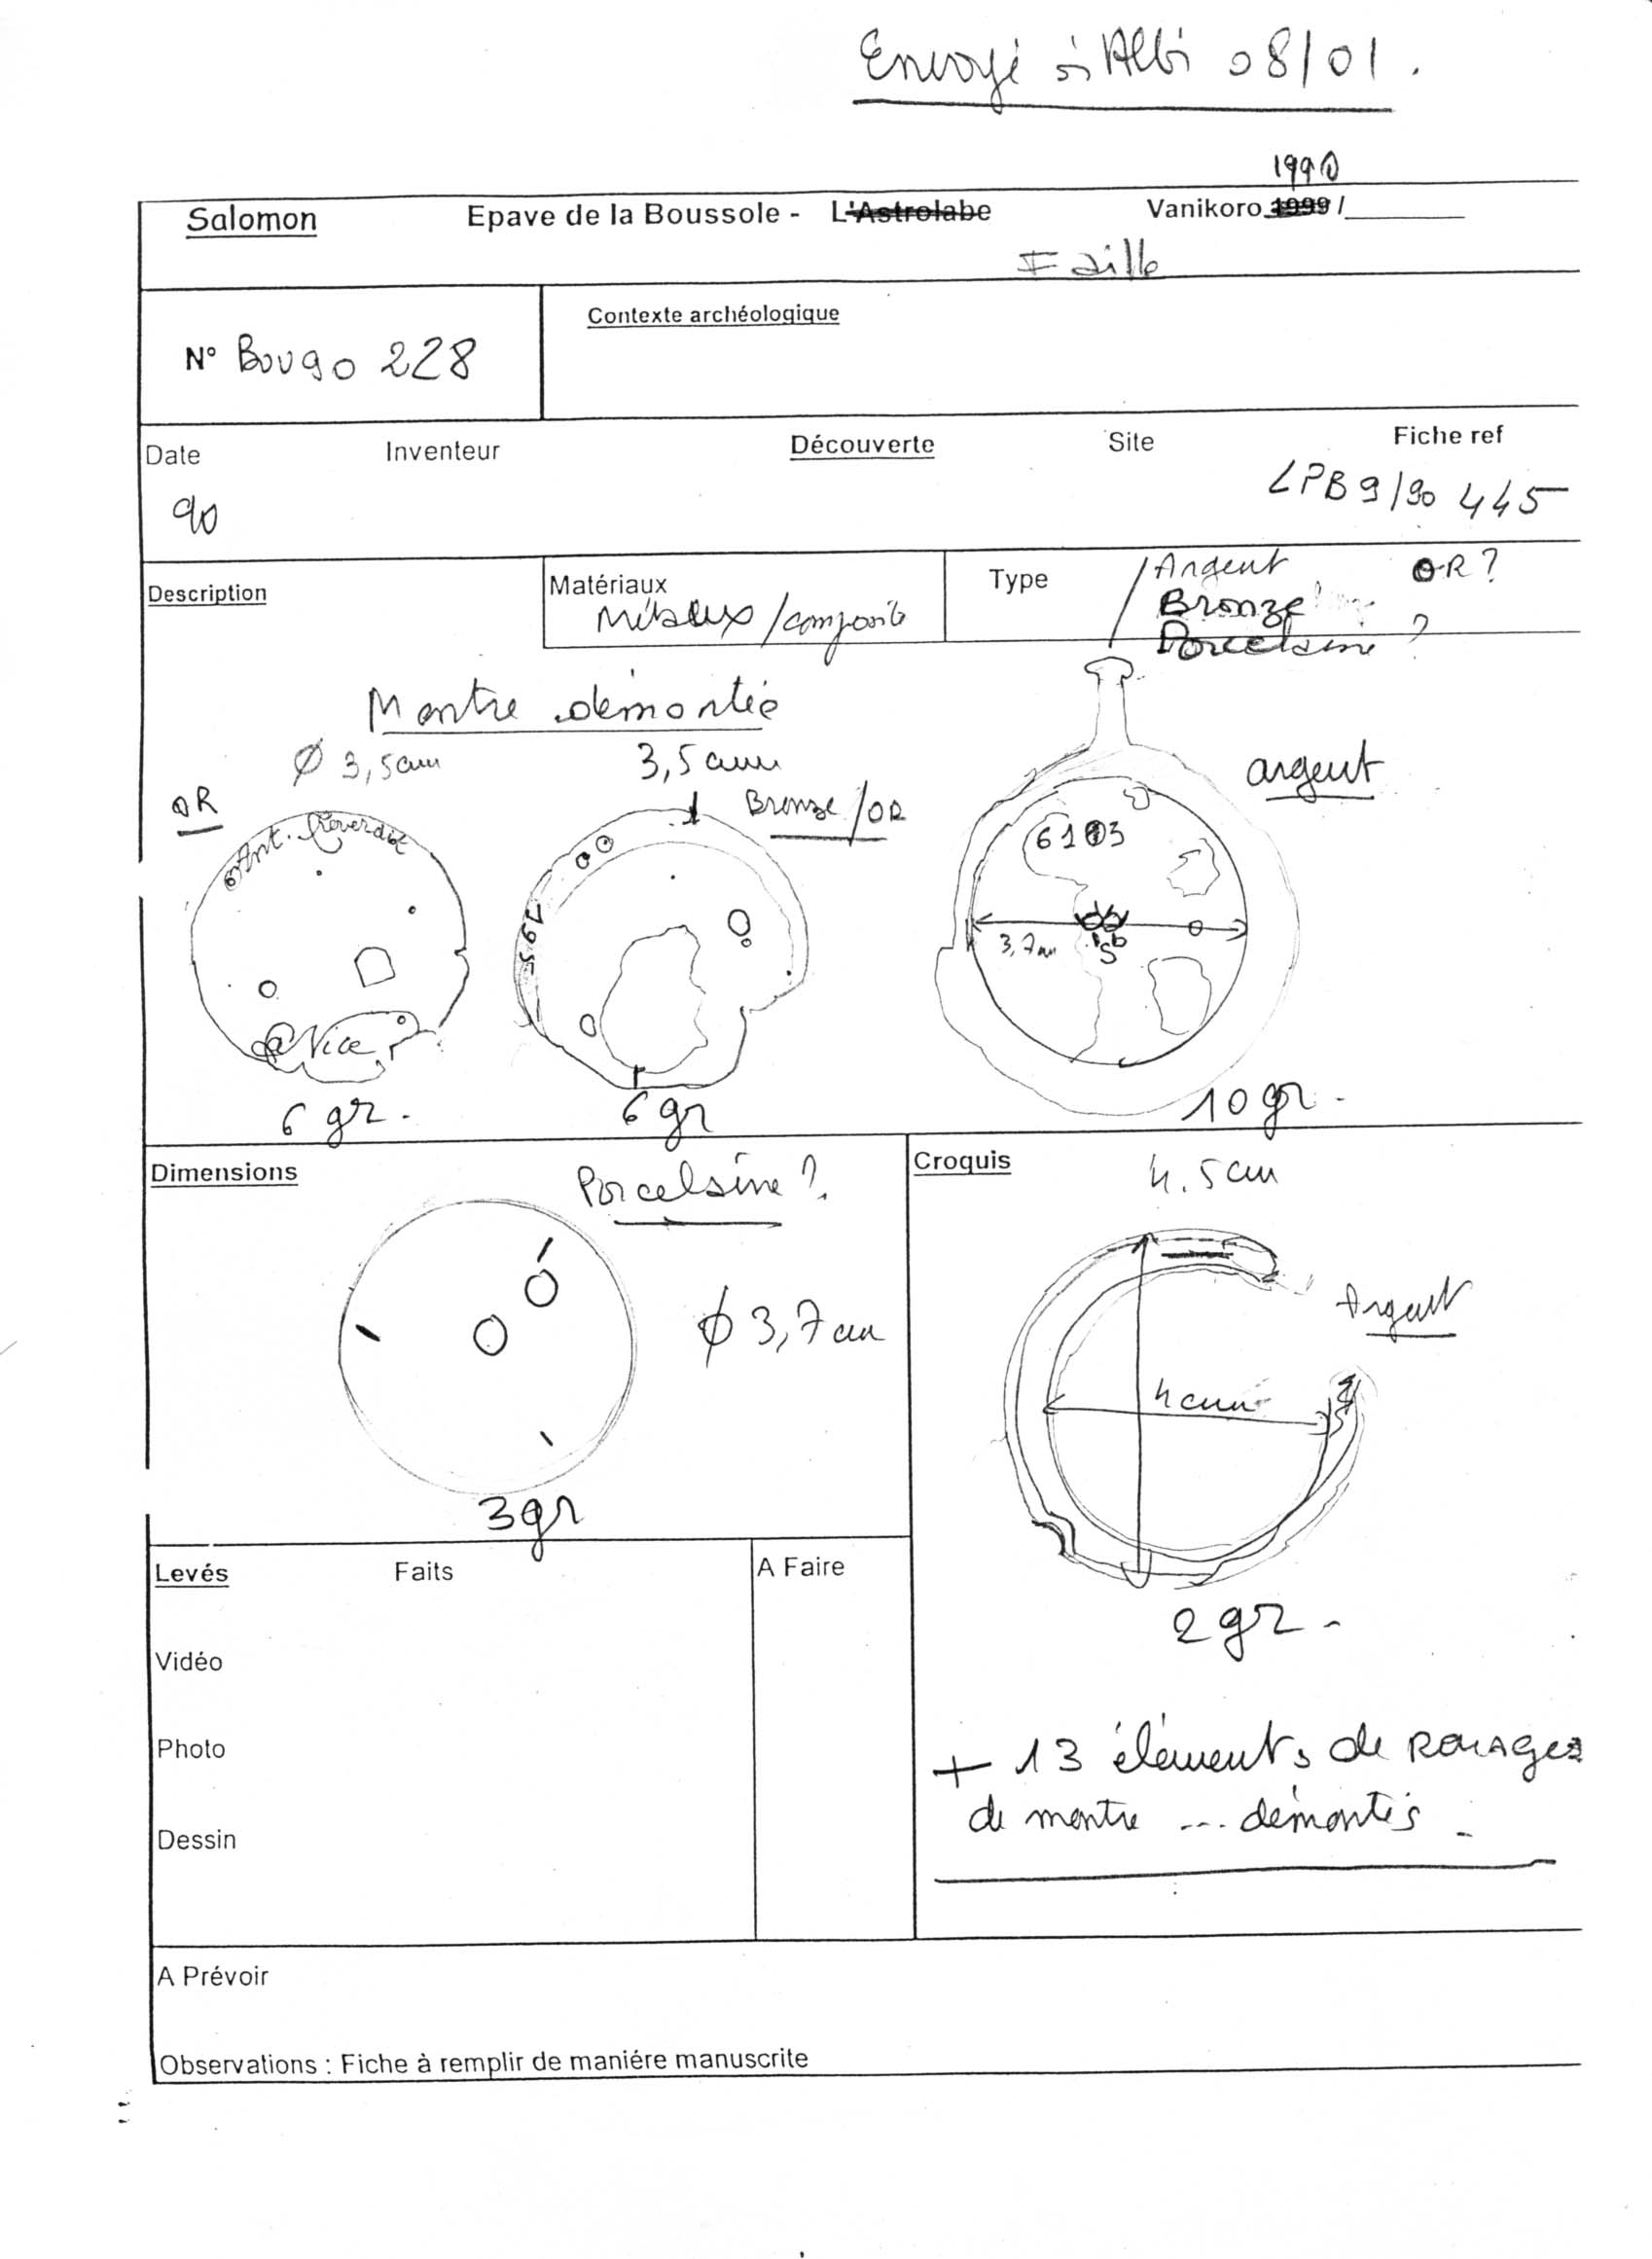 Envoyé à Albi 08/01.
1990
Salomon Epave de la Boussole - L'Astrolabe Vanikoro 1999 /
Faille
N° Bougo 228
Contexte archéologique
Date Inventeur Découverte Site Fiche ref
90 LPB 9/90 445
Description Matériaux Type Argent OR ?
Métaux / composite Bronze
Porcelaine ?
Montre démontée
Ø 3,5 cm 3,5 cm argent
OR Bronze / OR
Ant.
795
6103
3,7 cm
Nice
6 gr. 6 gr 10 gr.
Dimensions Porcelaine ?
Ø 3,7 cm
3 gr
Croquis 4.5 cm
Argent
4 cm
2 gr.
+ 13 éléments de ROUAGES
de montre ... démontés.
Levés Faits A Faire
Vidéo
Photo
Dessin
A Prévoir
Observations : Fiche à remplir de maniére manuscrite